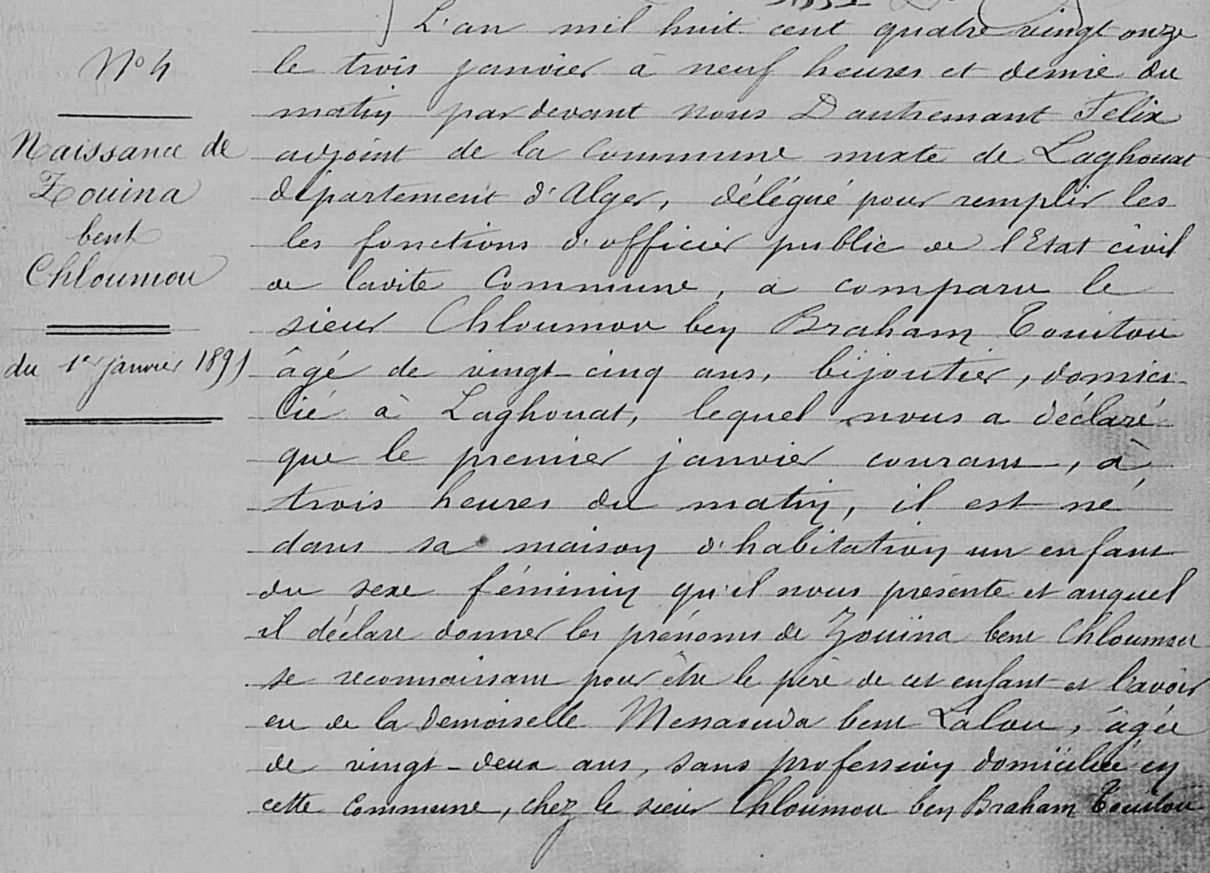 N° 4
Naissance de
Zouina
bent
Chloumou
du 1er janvier 1891
L'an mil huit cent quatre vingt onze
le trois janvier à neuf heures et demie du
matin par devant nous Dautremant Felix
adjoint de la Commune mixte de Laghouat
département d'Alger, délégué pour remplir les
les fonctions d'officier public de l'Etat civil
de ladite Commune, a comparu le
sieur Chloumou ben Braham Touitou
âgé de vingt-cinq ans, bijoutier, domici-
lié à Laghouat, lequel nous a déclaré
que le premier janvier courant, à
trois heures du matin, il est né
dans sa maison d'habitation un enfant
du sexe féminin qu'il nous présente et auquel
il déclare donner les prénoms de Zouina bent Chloumou
se reconnaissant pour être le père de cet enfant et l'avoir
eu de la demoiselle Messaouda bent Lalou, âgée
de vingt-deux ans, sans profession domiciliée en
cette Commune, chez le sieur Chloumou ben Braham Touitou